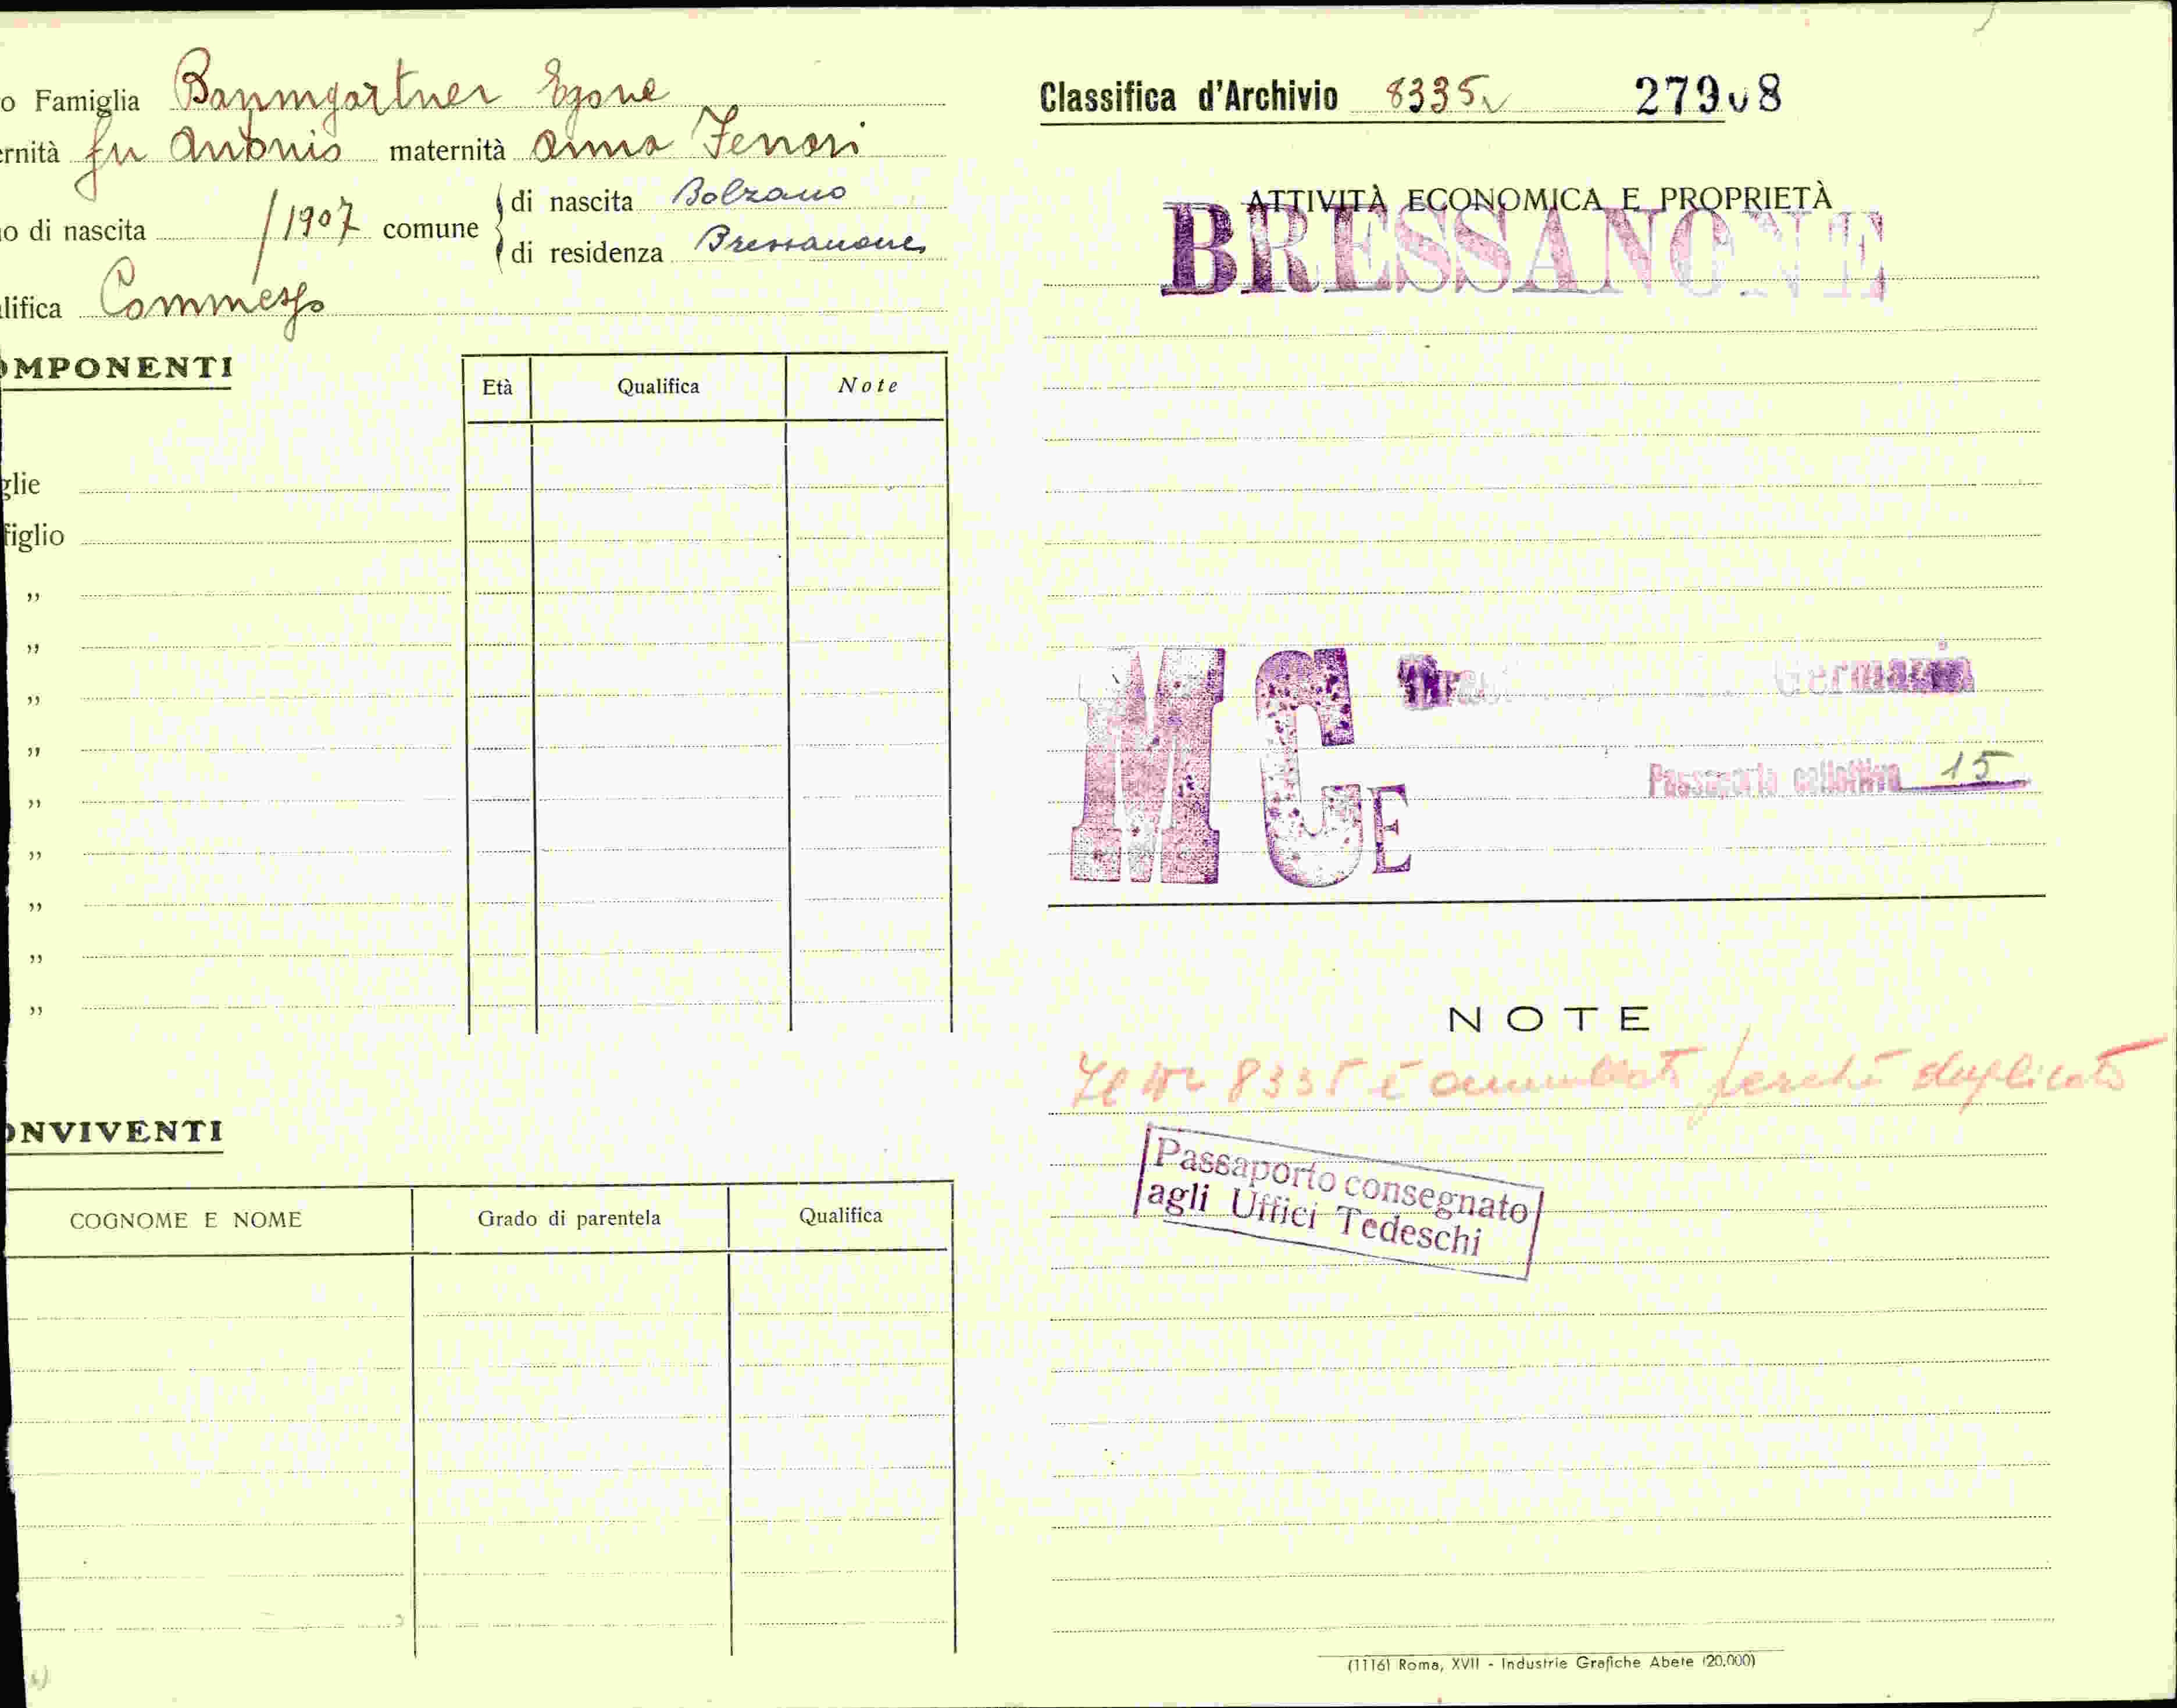 o Famiglia Baumgartner Egone
ernità fu Antonio maternità Anna Ferrari
o di nascita /1907 comune di nascita Bolzano
di residenza Bressanone
lifica Commesso
OMPONENTI
Età Qualifica Note
glie
figlio
”
”
”
”
”
”
”
”
”
ONVIVENTI
COGNOME E NOME Grado di parentela Qualifica
Classifica d'Archivio 8335 27908
ATTIVITÀ ECONOMICA E PROPRIETÀ
BRESSANONE
M C E
Germania
Passaporto collettivo 15
NOTE
Il nr 8335 è annullato perchè duplicato
Passaporto consegnato
agli Uffici Tedeschi
(1116) Roma, XVII - Industrie Grafiche Abete (20.000)